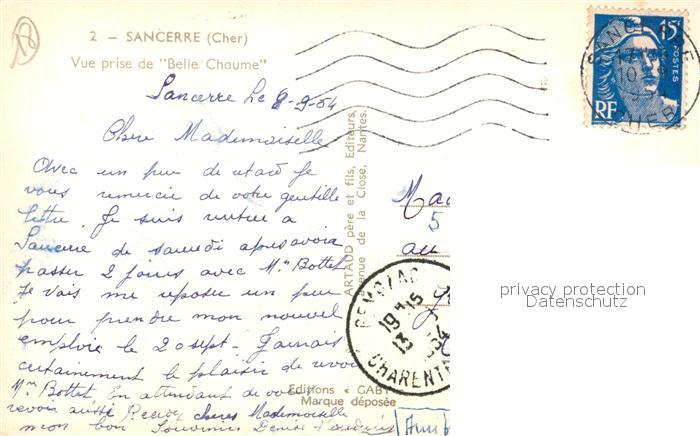 2 — SANCERRE (Cher)
Vue prise de "Belle Chaume"
15F
POSTES
RF
Sancerre Le 8-9-54
Chere Mademoiselle
Avec un peu de retard Je
vous remercie de votre gentille
lettre. Je suis rentree a
Sancerre de samedi apres avoir
passer 2 jours avec Mme Bottet
Je vais me reposer un peu
pour prendre mon nouvel
emploie le 20 sept. J'aurais
certainement le plaisir de revoir
Mme Bottet. En attendant de vous
revoir aussi Recevez cheres Mademoiselle
mon bon Souvenirs Denise
ARTAUD père et fils, Editeurs,
Avenue de la Close, Nantes.
5
au
19 H 15
13
CHARENTE
privacy protection
Datenschutz
Editions « GABY
Marque déposée